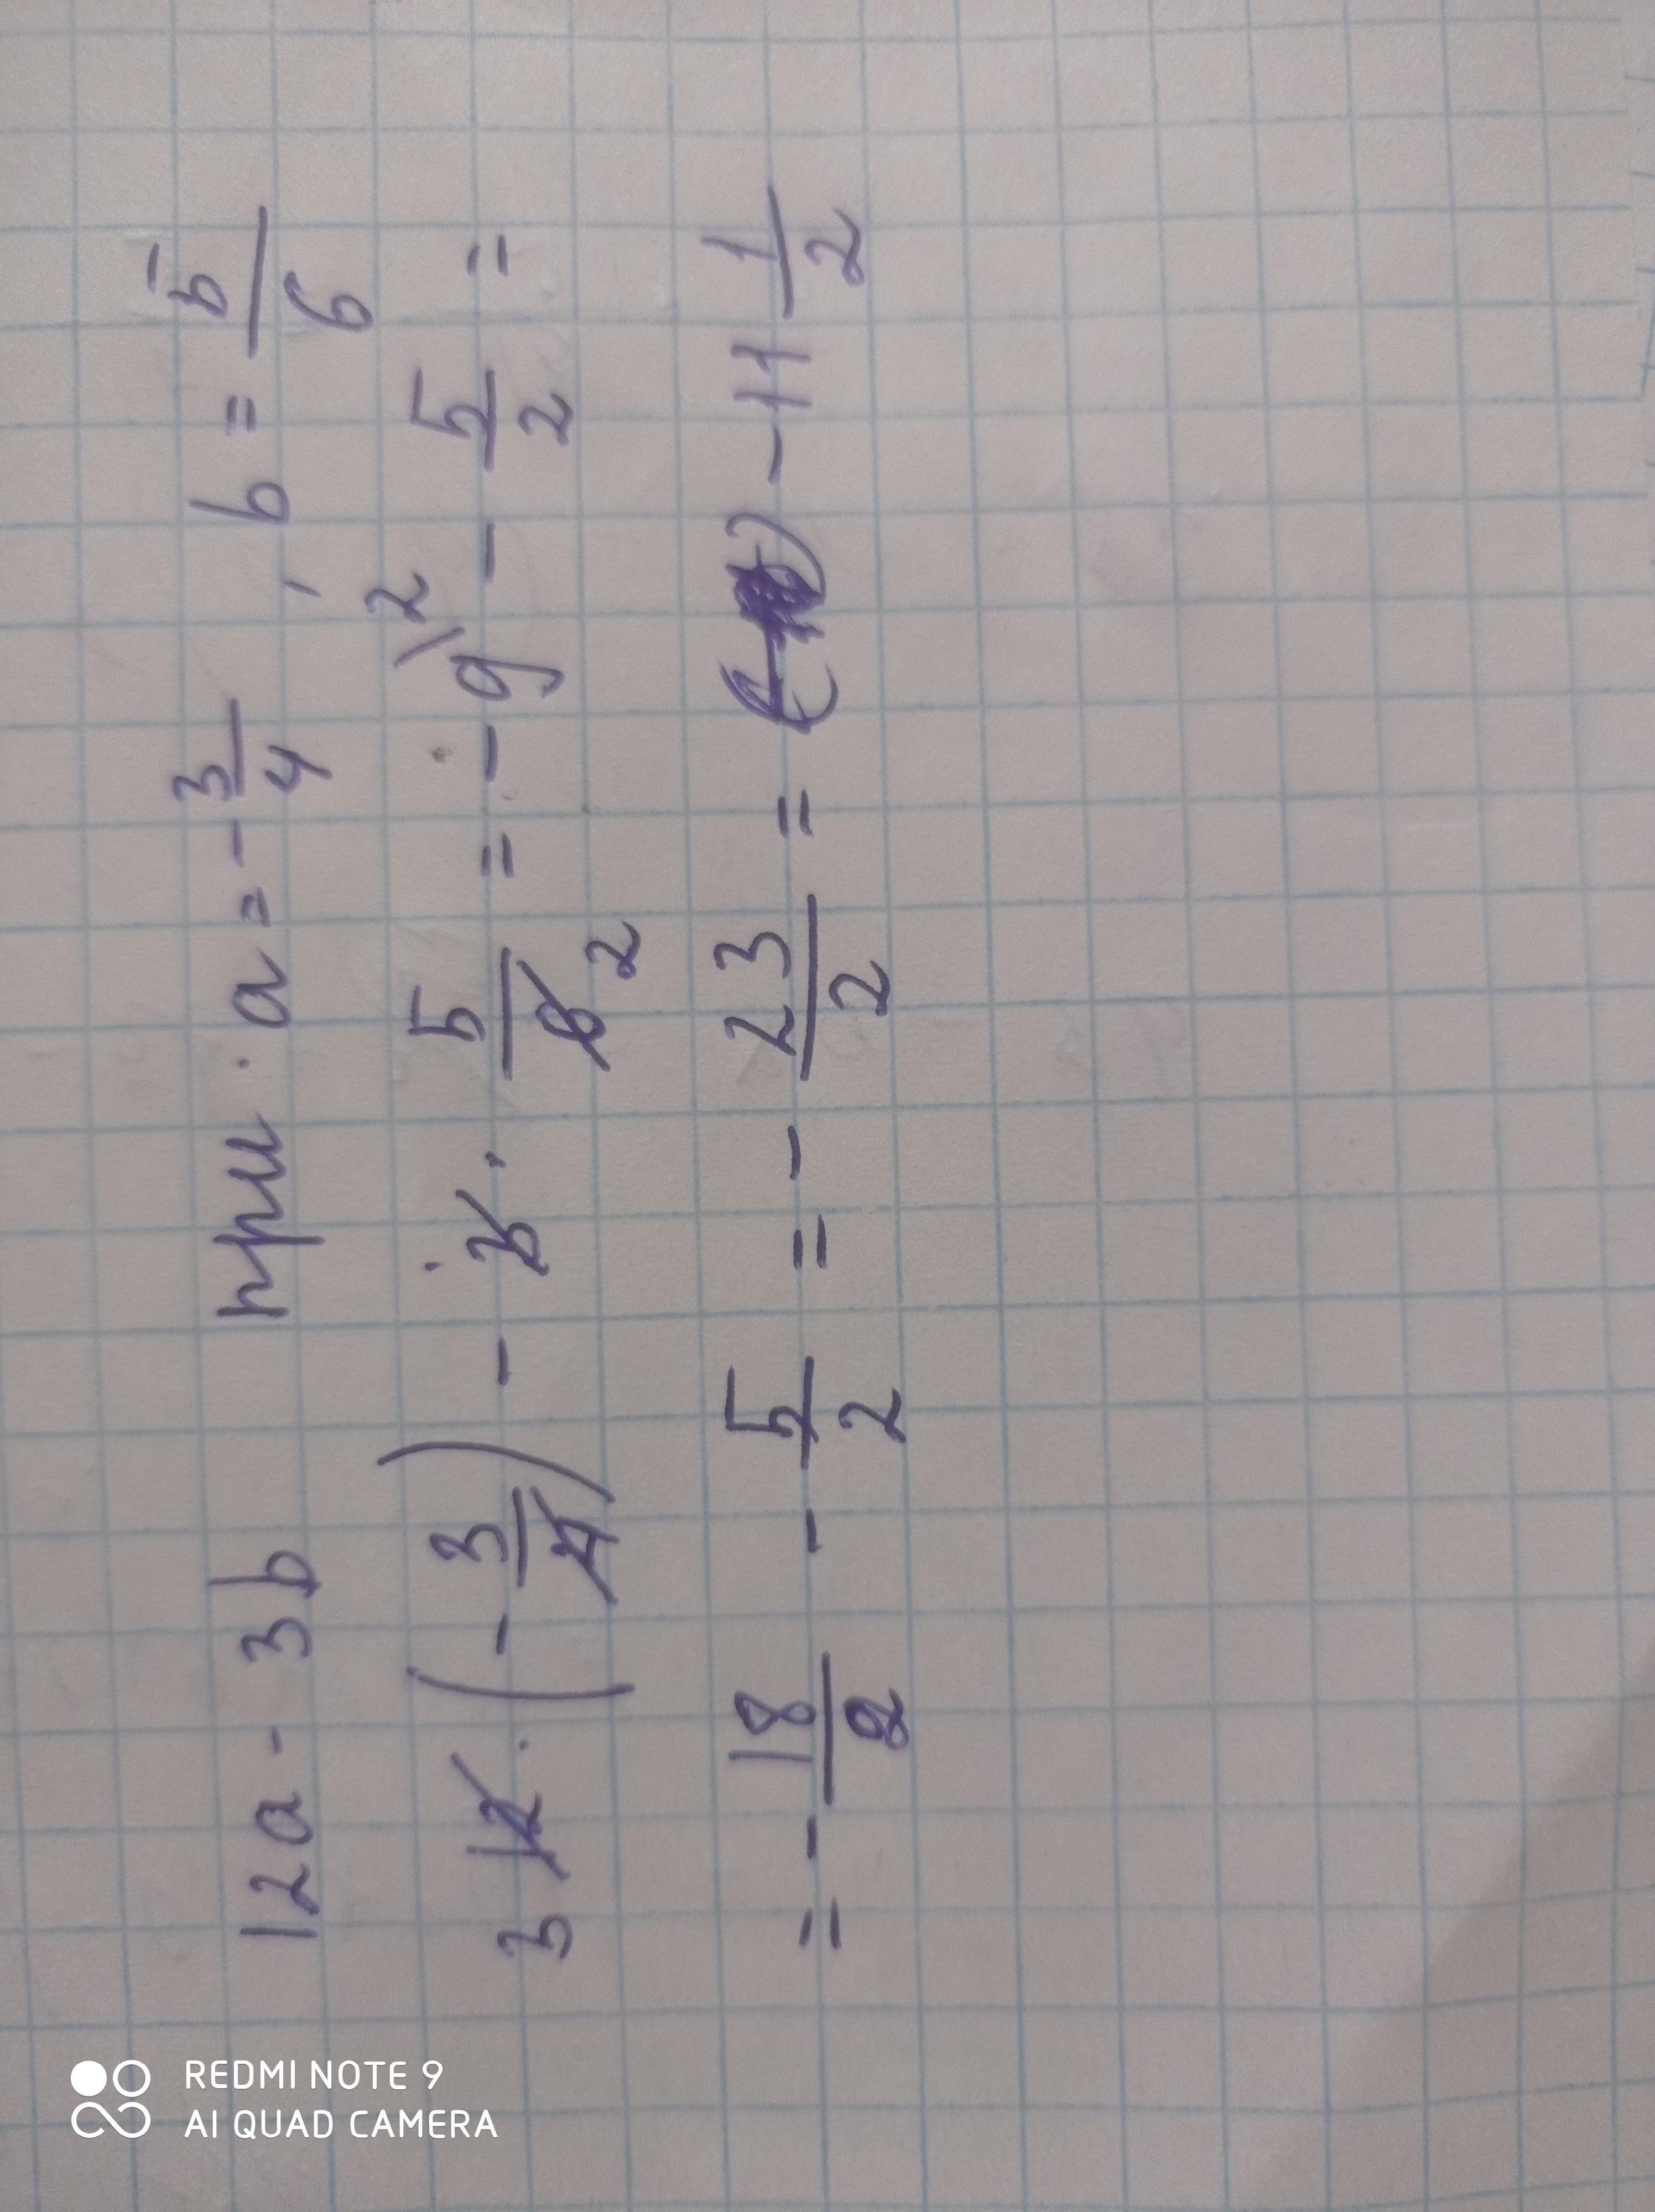 12a - 3b при a = -3/4, b = 5/6
3 12 · (-3/4) - 3 · 5/6 2 = -9\2 - 5/2 =
= -18/2 - 5/2 = -23/2 = -11 1/2
REDMI NOTE 9
AI QUAD CAMERA